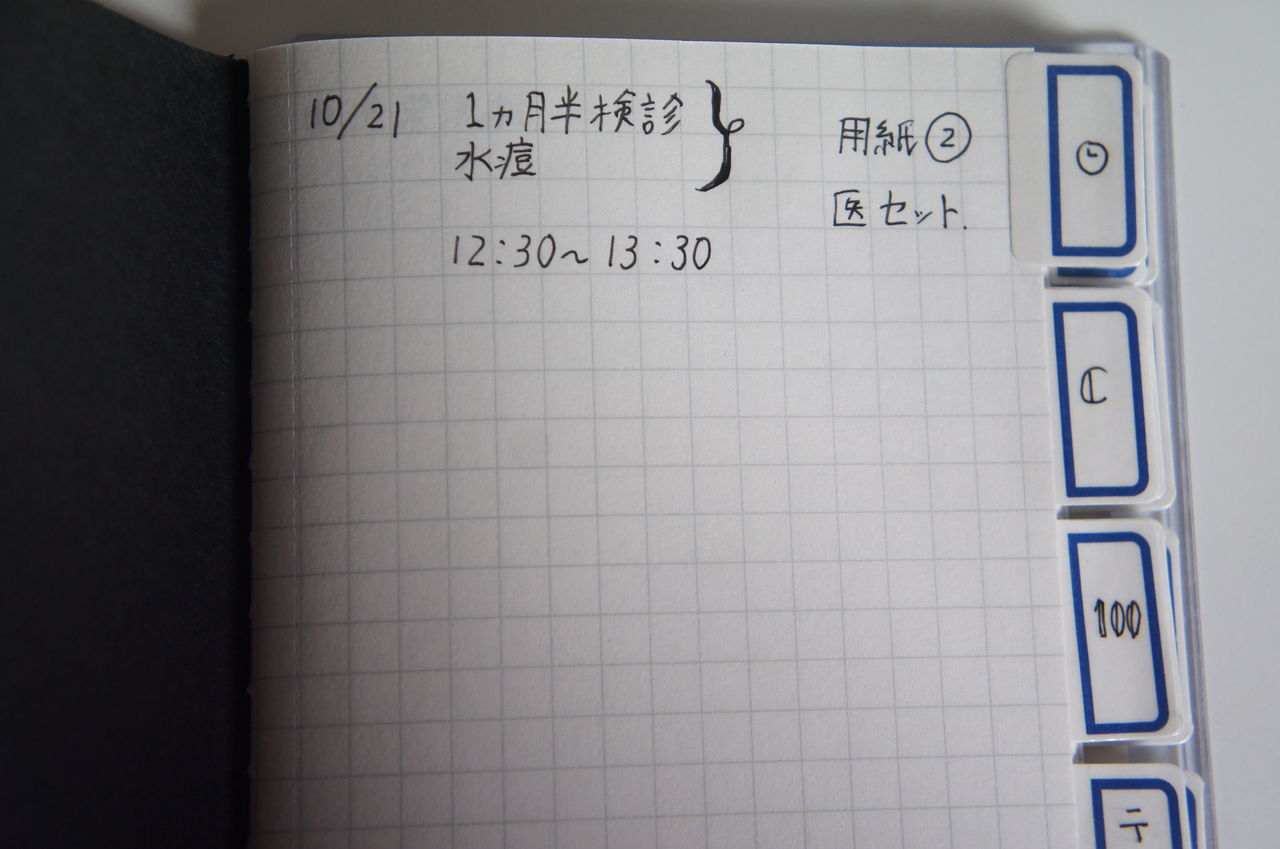 10/21 1ヵ月半検診
水痘
12:30~13:30
用紙②
医セット.
C
100